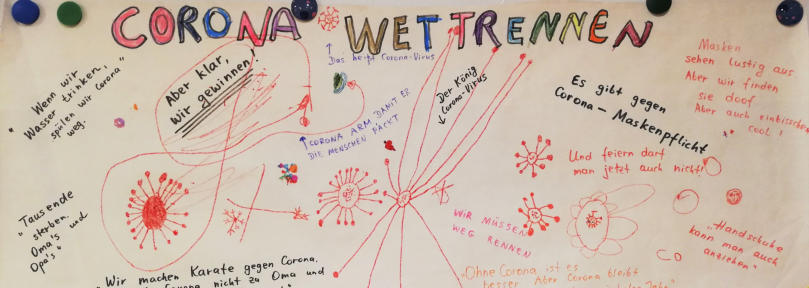 CORONA WETTRENNEN
"Wenn wir
Wasser trinken,
spülen wir Corona"
weg.
Aber klar,
wir gewinnen!
↑
Das heißt Corona-Virus
Der König
Corona-Virus
↓
↑ CORONA ARM DAMIT ER
DIE MENSCHEN PACKT
Es gibt gegen
Corona-Maskenpflicht
Masken
sehen lustig aus
Aber wir finden
sie doof
Aber auch ein bisschen
cool!
Und feiern darf
man jetzt auch nicht!
WIR MÜSSEN
WEG RENNEN
"Tausende
sterben.
Oma's und
Opa's"
"Handschuhe
kann man auch
anziehen"
"Wir machen Karate gegen Corona.
Corona nicht zu Oma und
"Ohne Corona ist es
besser. Aber Corona bleibt